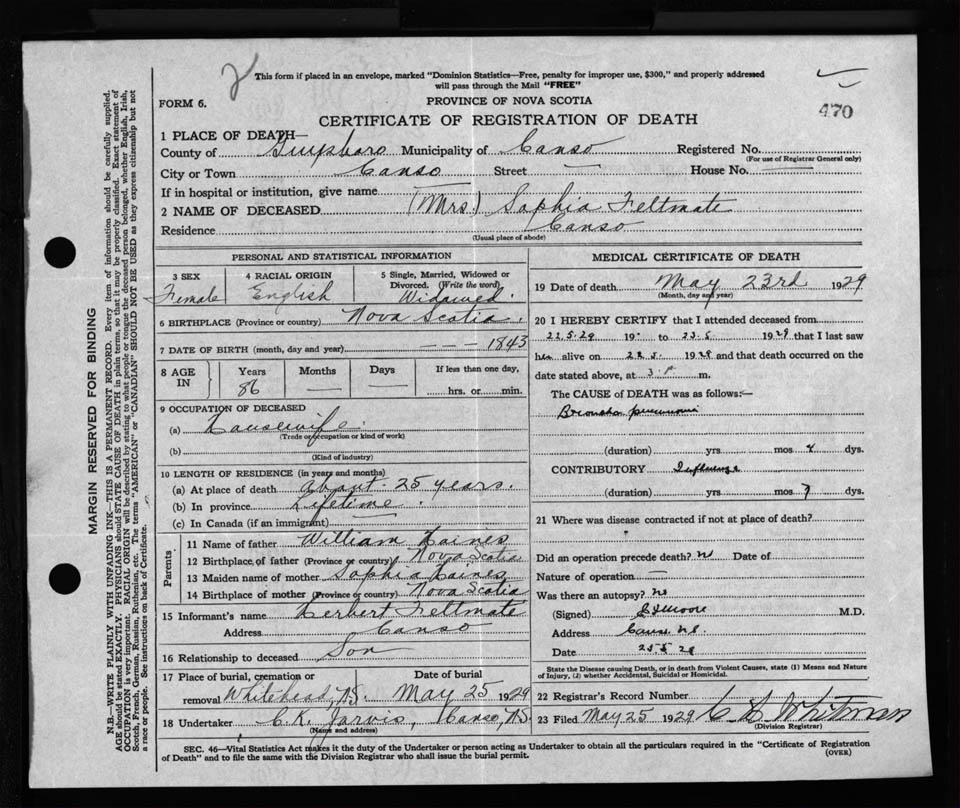 This form if placed in an envelope, marked "Dominion Statistics—Free, penalty for improper use, $300," and properly addressed
will pass through the Mail "FREE"
FORM 6.
PROVINCE OF NOVA SCOTIA
470
CERTIFICATE OF REGISTRATION OF DEATH
1 PLACE OF DEATH—
County of Guysboro Municipality of Canso Registered No.
(For use of Registrar General only)
City or Town Canso Street — House No. —
If in hospital or institution, give name —
2 NAME OF DECEASED (Mrs.) Sophia Feltmate
Residence Canso
(Usual place of abode)
PERSONAL AND STATISTICAL INFORMATION
3 SEX 4 RACIAL ORIGIN 5 Single, Married, Widowed or
Divorced. (Write the word)
Female English Widowed.
6 BIRTHPLACE (Province or country) Nova Scotia.
7 DATE OF BIRTH (month, day and year) — — — 1843
8 AGE IN Years Months Days If less than one day,
86 — — hrs. or min.
9 OCCUPATION OF DECEASED
(a) Housewife.
(Trade or occupation or kind of work)
(b)
(Kind of industry)
10 LENGTH OF RESIDENCE (in years and months)
(a) At place of death about 25 years.
(b) In province Lifetime
(c) In Canada (if an immigrant) —
Parents
11 Name of father William Haines
12 Birthplace of father (Province or country) Nova Scotia
13 Maiden name of mother Sophia Haines
14 Birthplace of mother (Province or country) Nova Scotia
15 Informant's name Herbert Feltmate
Address Canso
16 Relationship to deceased Son
17 Place of burial, cremation or Date of burial
removal Whitehead, N.S. May 25 1929
18 Undertaker C. K. Jarvis, Canso, N.S.
(Name and address)
MEDICAL CERTIFICATE OF DEATH
19 Date of death May 23rd 1929
(Month, day and year)
20 I HEREBY CERTIFY that I attended deceased from
22.5.29 19 to 23.5 1929 that I last saw
her alive on 22.5. 1929 and that death occurred on the
date stated above, at 3. m.
The CAUSE of DEATH was as follows:—
Broncho pneumonia
(duration) yrs mos 4 dys.
CONTRIBUTORY Influenza
(duration) yrs mos 7 dys.
21 Where was disease contracted if not at place of death?
Did an operation precede death? N Date of
Nature of operation —
Was there an autopsy? No
(Signed) Moore M.D.
Address Canso N.S.
Date 23 5 29
State the Disease causing Death, or in death from Violent Causes, state (1) Means and Nature
of Injury, (2) whether Accidental, Suicidal or Homicidal.
22 Registrar's Record Number
23 Filed May 25 1929 Whitman
(Division Registrar)
SEC. 46—Vital Statistics Act makes it the duty of the Undertaker or person acting as Undertaker to obtain all the particulars required in the "Certificate of Registration
of Death" and to file the same with the Division Registrar who shall issue the burial permit.
(OVER)
MARGIN RESERVED FOR BINDING
N.B.—WRITE PLAINLY WITH UNFADING INK—THIS IS A PERMANENT RECORD. Every item of information should be carefully supplied.
AGE should be stated EXACTLY. PHYSICIANS should STATE CAUSE OF DEATH in plain terms, so that it may be properly classified. Exact statement of
OCCUPATION is very important. RACIAL ORIGIN will be described by stating to what people or tongue the deceased person belonged, whether English, Irish,
Scotch, French, German, Russian, Ruthenian, etc. The terms "AMERICAN" or "CANADIAN" SHOULD NOT BE USED as they express citizenship but not
a race or people. See instructions on back of Certificate.